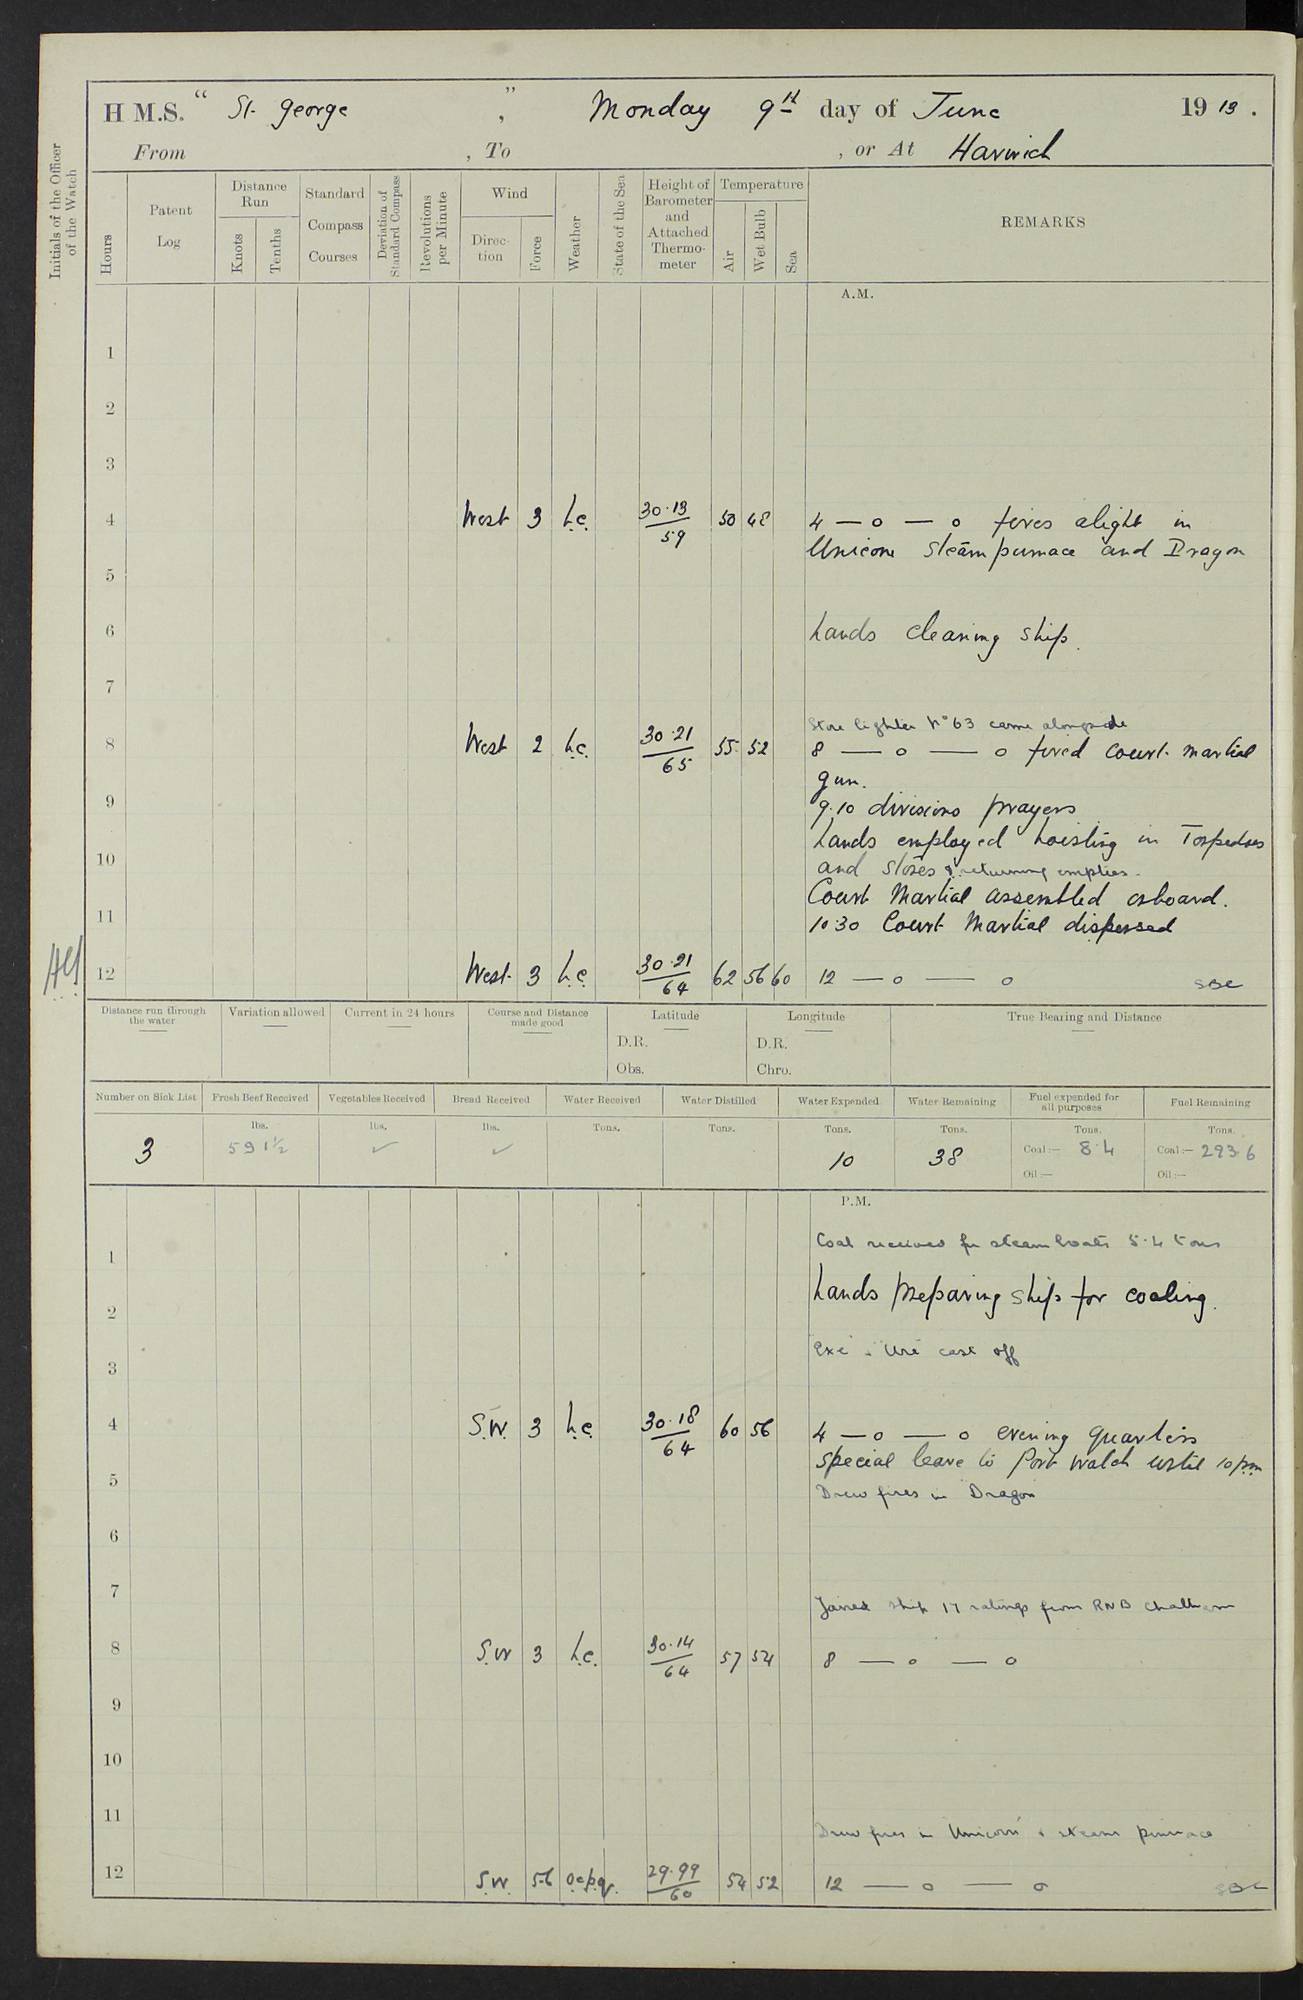 H M.S. " St. George ", Monday 9th day of June 1913.
From , To , or At Harwich
Initials of the Officer of the Watch
Hours
Patent Log
Distance Run
Knots
Tenths
Standard Compass Courses
Deviation of Standard Compass
Revolutions per Minute
Wind
Direction
Force
Weather
State of the Sea
Height of Barometer and Attached Thermometer
Temperature
Air
Wet Bulb
Sea
REMARKS
A.M.
1
2
3
4 West 3 b.c. 30.13 59 50 48 4 — o — o fires alight in
Unicorn Steam pinnace and Dragon
5
6 hands cleaning ship.
7
Store lighter No 63 came alongside
8 West 2 b.c. 30.21 65 55 52 8 — o — o fired court-martial
gun.
9 9.10 divisions prayers
hands employed hoisting in Torpedoes
10 and stores & returning empties.
Court Martial assembled onboard.
11 10.30 Court Martial dispersed
12 West 3 b.c. 30.21 64 62 56 60 12 — o — o SBC
Distance run through the water
Variation allowed
Current in 24 hours
Course and Distance made good
Latitude
D.R.
Obs.
Longitude
D.R.
Chro.
True Bearing and Distance
Number on Sick List Fresh Beef Received Vegetables Received Bread Received Water Received Water Distilled Water Expended Water Remaining Fuel expended for all purposes Fuel Remaining
lbs. lbs. lbs. Tons. Tons. Tons. Tons. Tons. Tons.
3 591½ ✓ ✓ 10 38 Coal:— 8.4 Coal:— 293.6
Oil:— Oil:—
P.M.
Coal received for steamboats 5.4 tons
1
2 hands preparing ship for coaling.
"Exe" & "Ure" cast off
3
4 S.W. 3 b.c. 30.18 64 60 56 4 — o — o evening quarters
special leave to Port watch until 10 pm
5 Drew fires in Dragon
6
7 Joined ship 17 ratings from RNB Chatham
8 S.W 3 b.c. 30.14 64 57 54 8 — o — o
9
10
11
Drew fires in Unicorn & steam pinnace
12 S.W. 5-6 o.c.p.q. 29.99 60 54 52 12 — o — o SBC